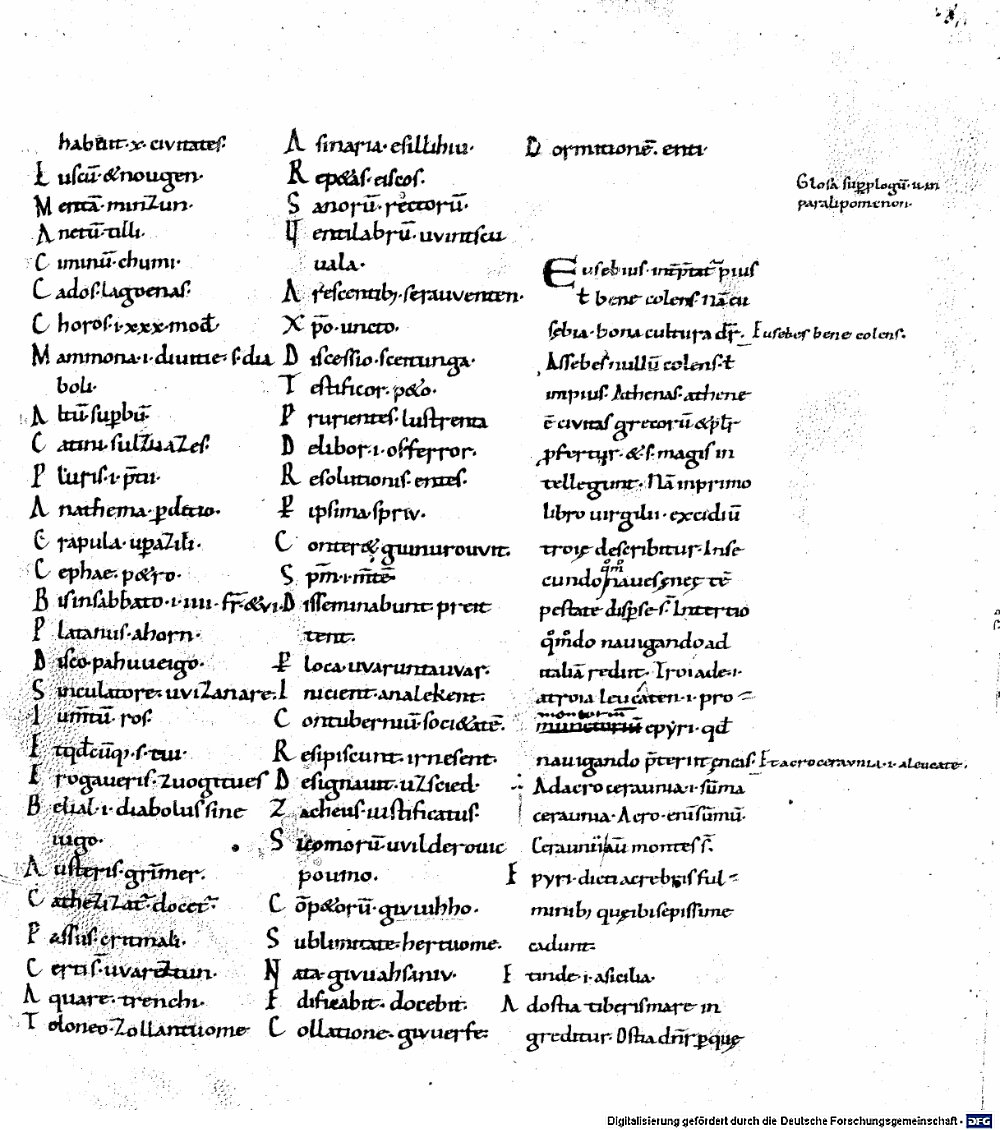 habent .x. civitates.
Luscu᷄ &nougen.
Menta᷄ minzun.
Anetu᷄ tilli.
Ciminu᷄ chumi.
Cados. lagoenas.
Choros .i. xxx. mod̄
Mammona .i. divitie s. dia
boli.
Altu᷄ sup̱bu᷄
Catini. sulzuazes.
Anathema. p̱ditio.
Crapula. up̱azili.
Cephae. p&ro.
Bis in sabbato .i. iiii. fr̄. & vi.
Platanus. ahorn.
Disco. pahuueigo.
Sinculatore. uvizanare.
ros.
Erogaveris. zuogitues
Belial .i. diabolus sine
iugo.
Austeris. gri᷄mer.
Cathezizat᷑. docet᷑.
Passus. critmali.
Certis᷄. uvareztun.
Aquare. trenchi.
Toloneo. zollantuome
Asinaria. esillihiu.
Rep&&as. eiscos.
Sanoru᷄. rectoru᷄.
Ventilabru᷄. uvintscu
uala.
Arescentib;. serauventen.
Xp̄o. uncto.
Discessio. sceitunga.
Testificor. p&o.
Prurientes. lustrenta
Delibor .i. offerror.
Resolutionis. entes.
Ꝑipsima. spriv.
Conter&. gimurouvit.
Sp̄m .i. m̄te᷄
Disseminabunt. preit
tent.
Ꝑ loca. uvaruntauvar.
Inicient. analekent.
Contuberniu᷄. soci&ate᷄.
Resipiscunt. irnesent.
Designavit. uzscied.
Zacheus. iustificatus.
Sicomoru᷄. uvilderouic
poumo.
Co᷄p&oru᷄. givuihho.
Sublimitate. hertuome.
Nata. givuahsaniv.
Edificabit. docebit.
Collatione. givuerfe.
Dormitione᷄. enti.
Glosa᷄ sup̱ plogu᷄
paralipomenon.
Eusebius. int̄p̄tat᷑ pius
ł bene colens. Na᷄ eu
sebia. bona cultura dr̄. Eusebes bene colens.
Assebes nullu᷄ colens. ł
impius. Athenas. athene
e᷄ civitas grecoru᷄ &pl̄r
p̱fertur. &s. magis in
tellegunt. Na᷄ in primo
libro virgilii. excidiu᷄
troie describitur. In se
cundo q̊m̊ naves ęneę te᷄
pestate disp̱se s᷄. In tertio
q̊m̊do navigando ad
italia᷄ rediit. Troiade .i.
a troia leucaten .i. pro
montoriu᷄
epyri. qd̄
navigando p̄teriit ęneas. Et acroceravnia .i. a leucate.
Ad acroceraunia .i. su᷄ma
ceraunia. Acro. eni᷄ su᷄mu᷄.
Ceraunii au᷄ montes s᷄.
Epyri. dicti a crebris ful
minib; qui ibi sepissime
cadunt.
Et inde .i. a sicilia.
Ad ostia tiberis mare in
greditur. Ostia dn̄r p̱ que
Digitalisierung gefördert durch die Deutsche Forschungsgemeinschaft - DFG